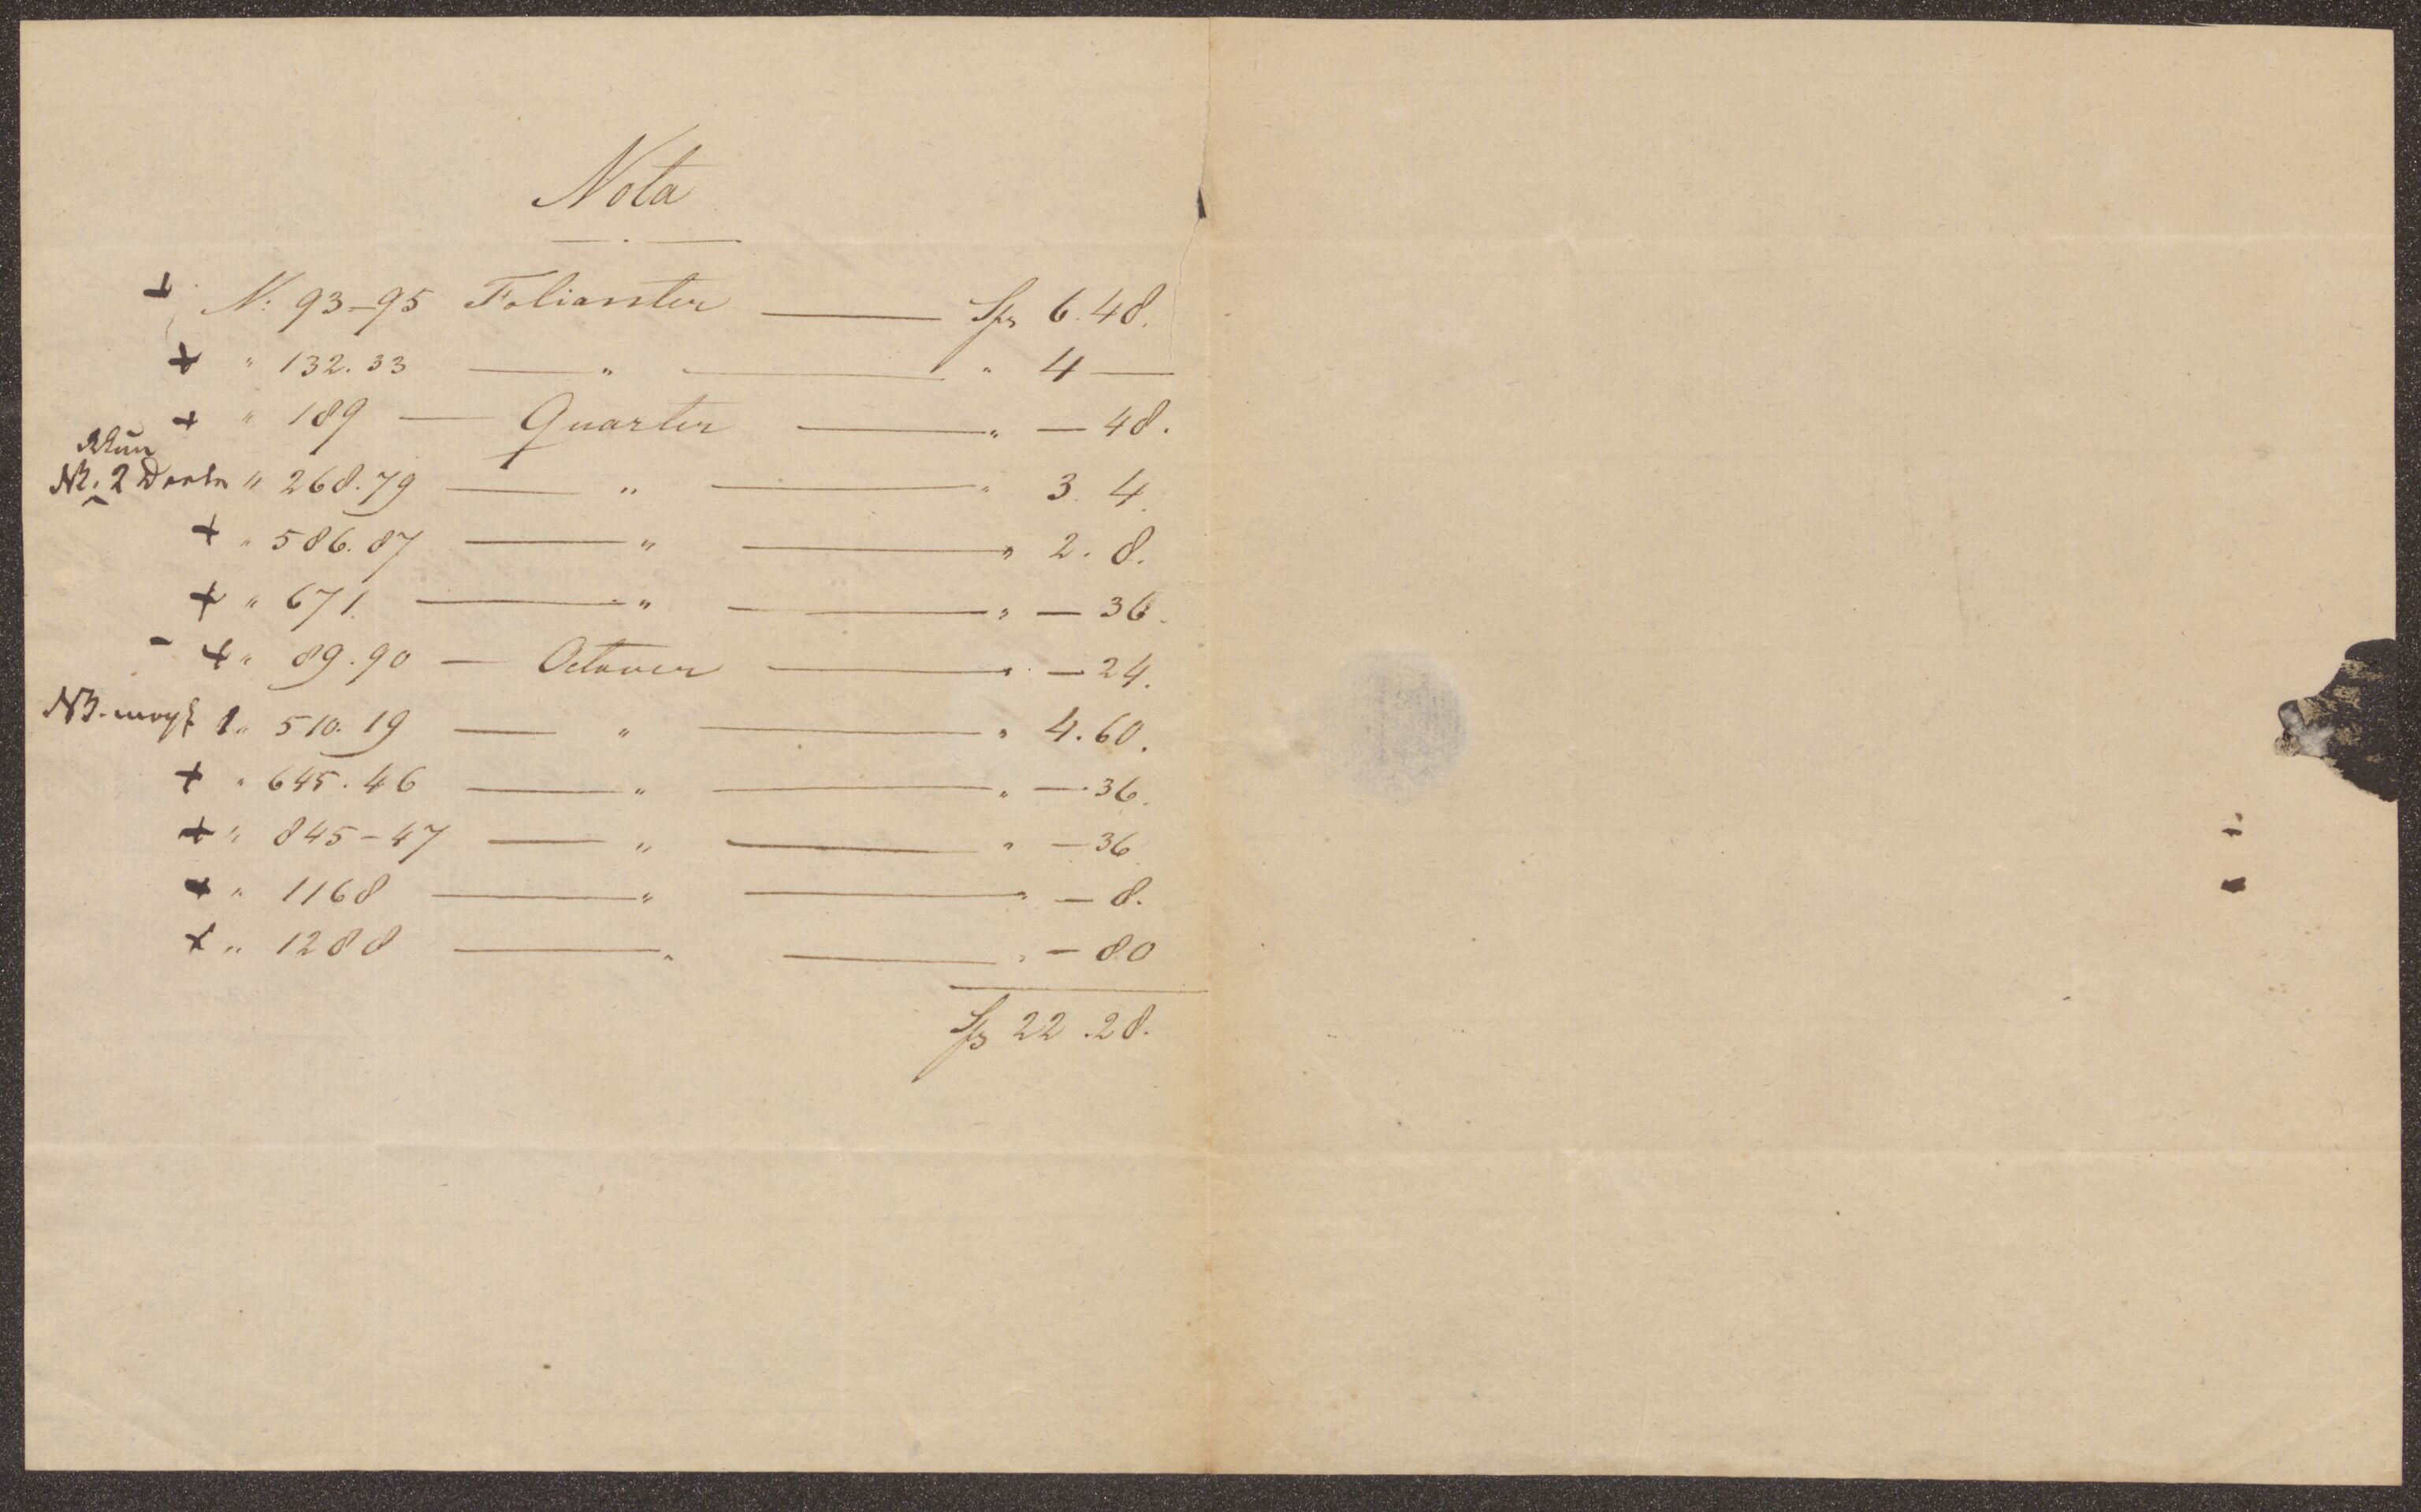 Nota
+ N: 93-95 Folianter — Sps 6.48.
+ " 132.33 — " — " 4 —
+ " 189 — Quarter — " — 48.
Kun
NB. 2 Deele " 268.79 — " — " 3. 4.
+ " 586.87 — " — " 2. 8.
+ " 671. — " — " — 36.
- + " 89.90 — Octaver — " — 24.
NB. 1 " 510.19 — " — " 4.60.
+ " 645.46 — " — " — 36.
+ " 845-47 — " — " — 36
+ " 1168 — " — " — 8.
+ " 1288 — " — " — 80
Sps 22.28.